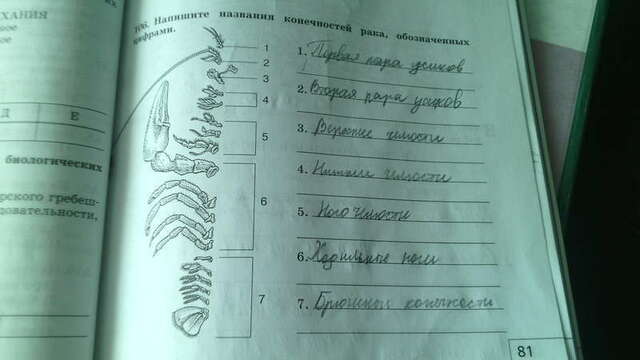 ХАНИЯ
ное
кое
Д Е
биологических
рского гребеш-
довательности,
106. Напишите названия конечностей рака, обозначенных
цифрами.
1
2
3
4
5
6
7
1. Первая пара усиков
2. Вторая пара усиков
3. Верхние челюсти
4. Нижние челюсти
5. Ногочелюсти
6. Ходильные ноги
7. Брюшные конечности
81